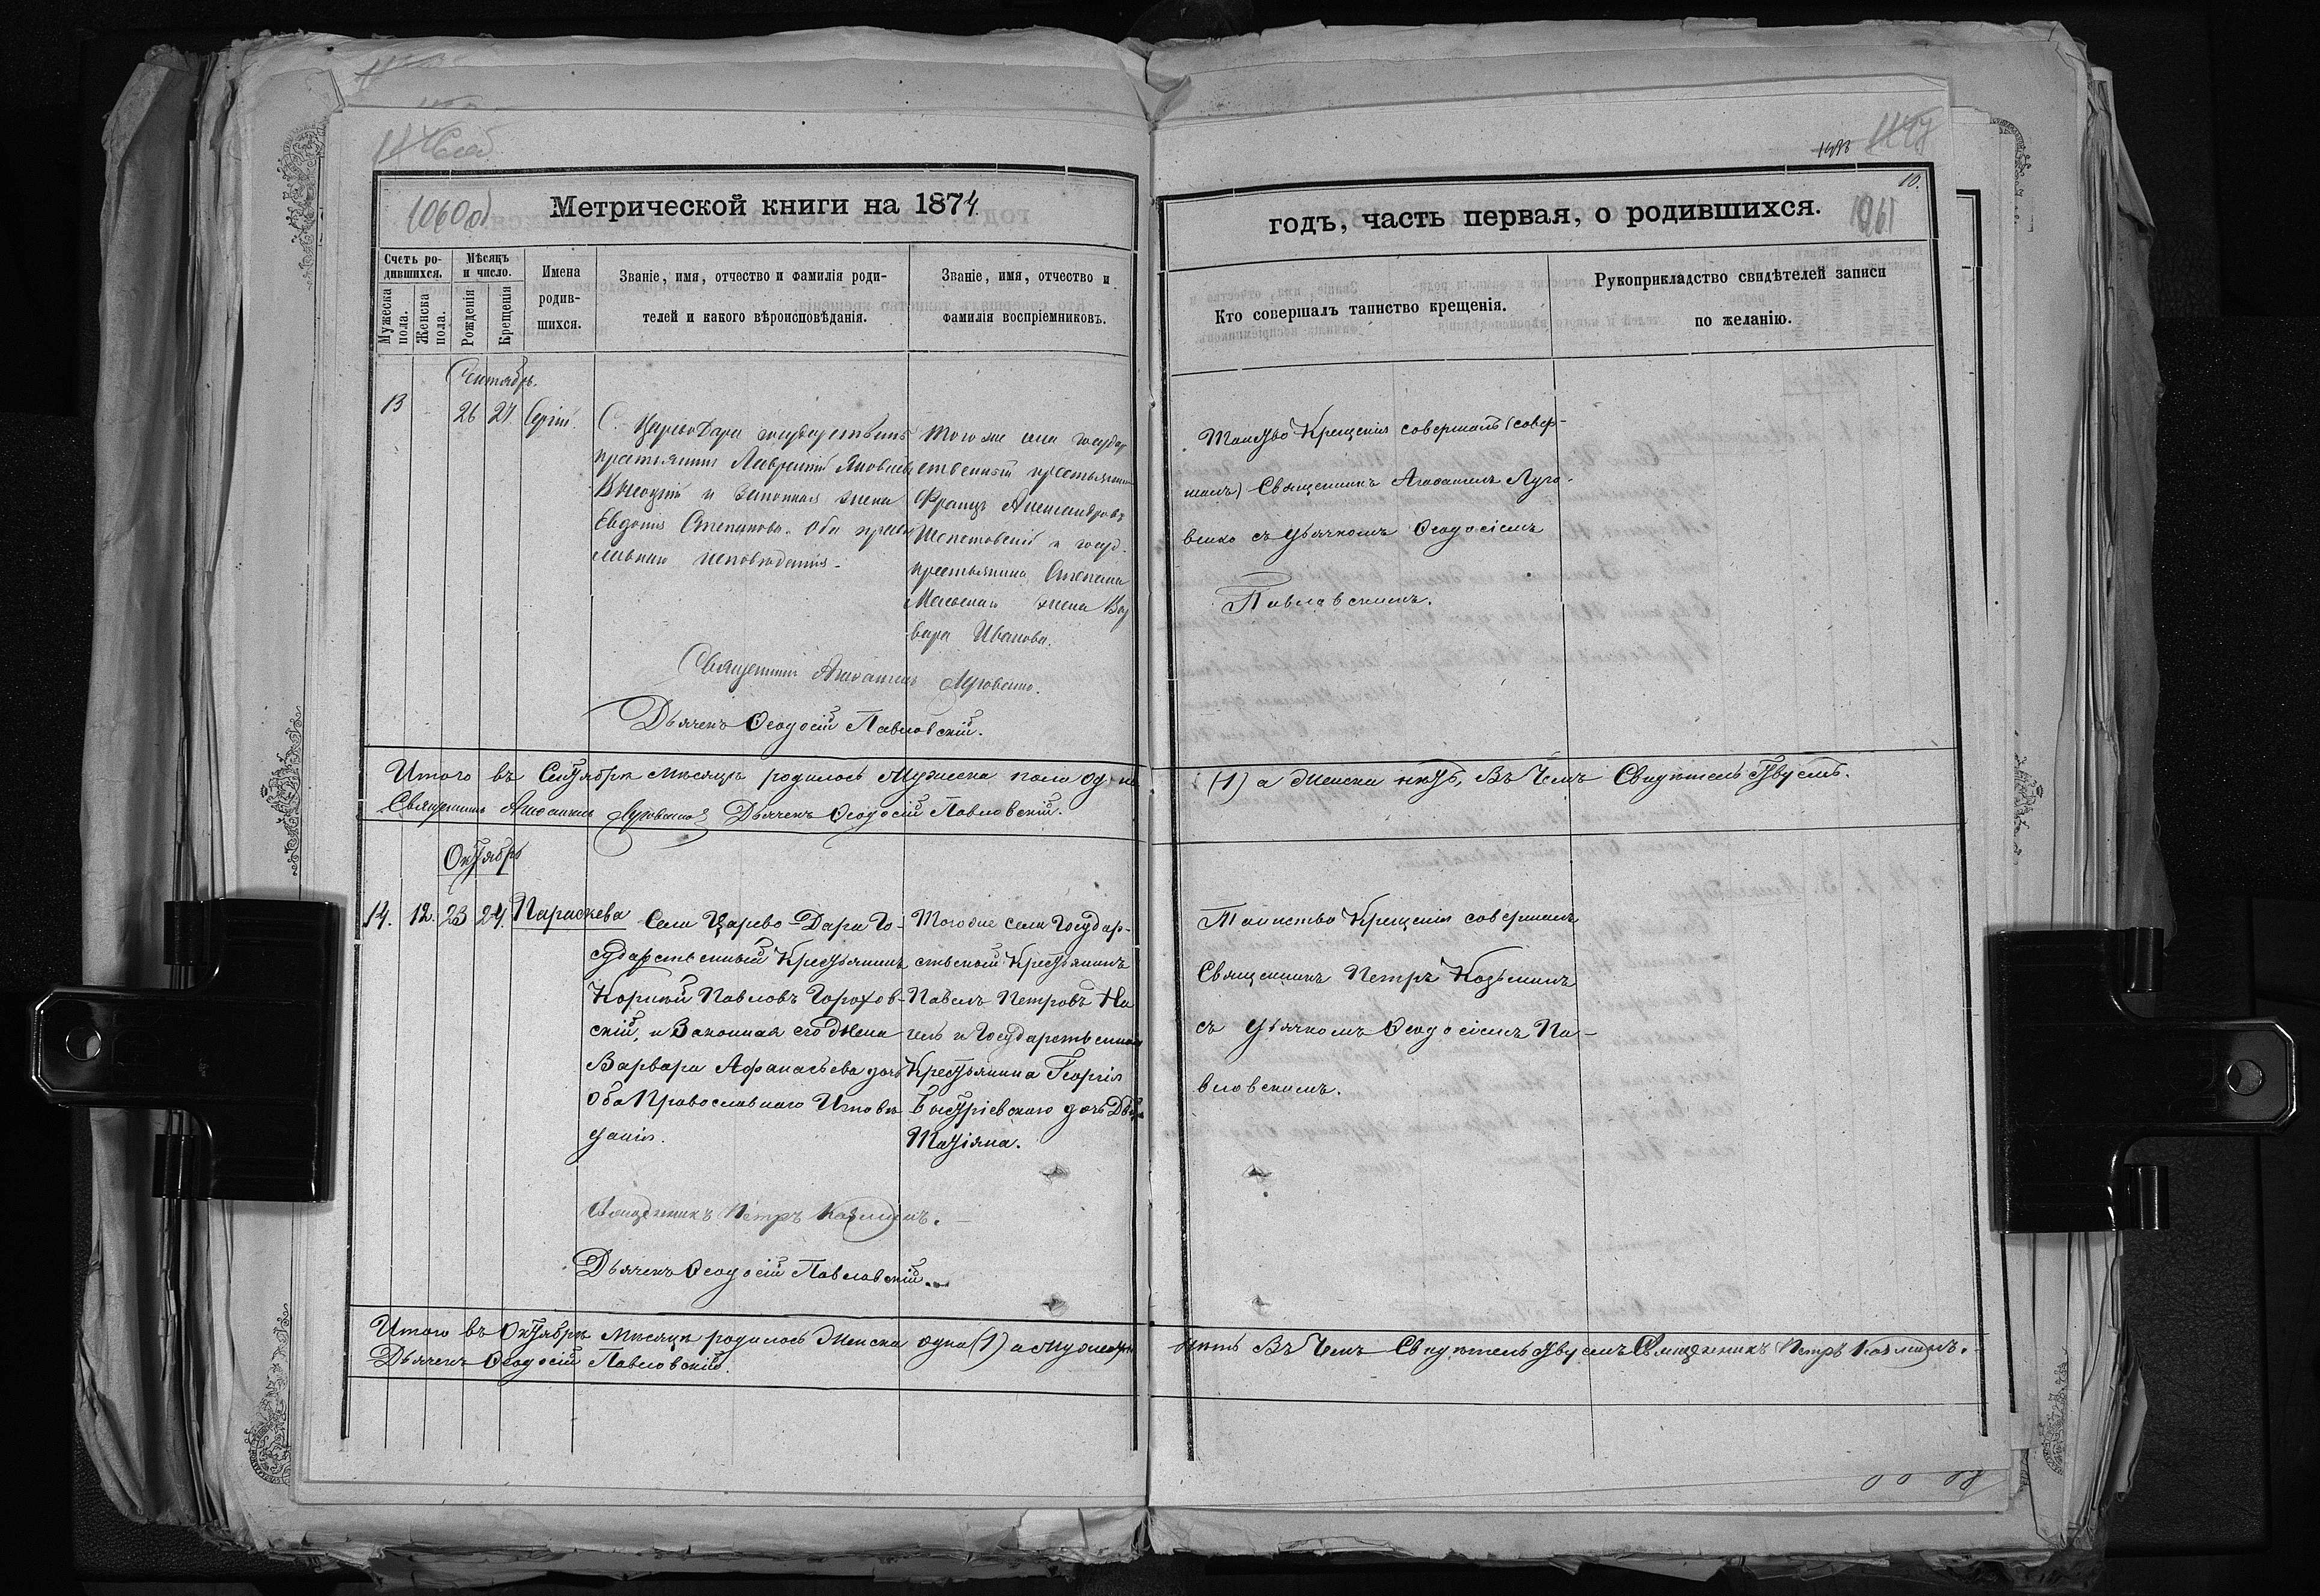 1060 об
Метрической книги на 1874
Счетъ родившихся.
Мужеска пола.
Женска пола.
Мѣсяцъ и число.
Рожденія
Крещенія
Имена родившихся.
Званіе, имя, отчество и фамилія роди-
телей и какого вѣроисповѣданія.
Званіе, имя, отчество и
фамилія воспріемниковъ.
Сентябрь.
13 26 27 Сергій.
С. Царево Дара государственъ
крестьянинъ Лаврентій
и законная жена
Евдокія Степанова. Оба право
славнаго исповѣданія.
Того же села государ
ственный крестьянинъ
Францъ Александровъ
Шепетовскій и госуд.
крестьянина Степана
жена Вар
вара Иванова.
Священникъ Аѳанасій
Дьячекъ Ѳеодосій Павловскій.
Итого въ Сентябрѣ мѣсяцѣ родилось Мужеска пола одинъ
Священникъ Дьячекъ Ѳеодосій Павловскій.
Октябрь
14. 12. 23 24. Параскева
Села Царево-Дара Го-
сударственный Крестьянинъ
Корнѣй Павловъ Горохов-
скій, и Законная его Жена
Варвара Афанасьева дочь
Оба Православнаго Исповѣ
данія.
Того же села Государ-
ственный Крестьянинъ
Павелъ Петровъ
и Государственнаго
Крестьянина Георгія
дочь
Татіяна.
Священникъ Петръ Козьминъ.
Дьячекъ Ѳеодосій Павловскій.
Итого въ Октябрѣ Мѣсяцѣ родилось Женска одна (1) а Мужеска
Дьячекъ Ѳеодосій Павловскій.
10.
годъ, часть первая, о родившихся.
1061
Кто совершалъ таинство крещенія.
Рукоприкладство свидѣтелей записи
по желанію.
Таинство Крещенія совершалъ (совер-
шалъ) Священникъ Луго-
венко съ дьячкомъ Ѳеодосіемъ
Павловскимъ.
(1) а Женска нѣтъ, Въ Чемъ Свидѣтельствуемъ.
Таинство Крещенія совершалъ
Священникъ Петръ Козьминъ
съ дьячкомъ Ѳеодосіемъ Па-
вловскимъ.
нѣтъ Въ Чемъ Свидѣтельствуемъ Священникъ Петръ Козьминъ.